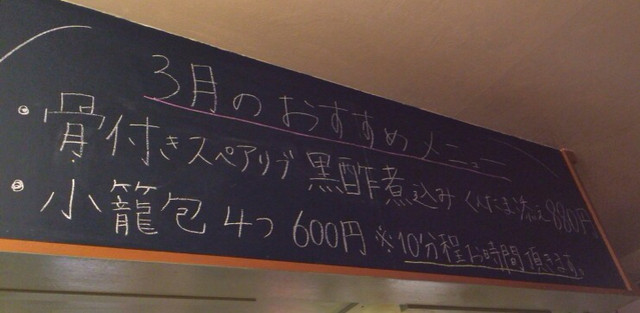 3月のおすすめメニュー
・骨付きスペアリブ 黒酢煮込み くんたま添え 880円
・小籠包 4つ 600円 ※10分程お時間頂きます。